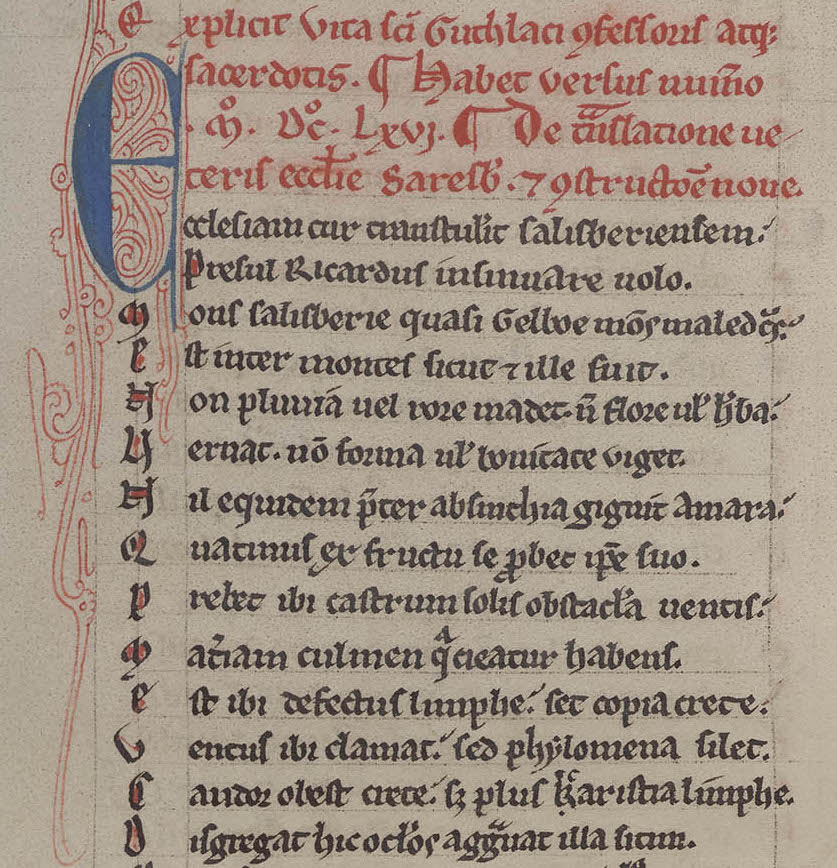 Explicit vita sc̄i Guthlaci ꝯfessoris atq;
sacerdotis. ¶ Habet versus num̄o
.Mͦ. Dcͦ. Lxvj. ¶ De tͣnslatione ue-
teris eccl̄ie Saresb̄. ⁊ ꝯstructōe noue.
Ecclesiam cur transtulit salisberiensem.
Presul Ricardus insinuare uolo.
Mons salisberie quasi Gelboe mōs maledcūs.
Est inter montes sicut ⁊ ille fuit.
Non pluuiā uel rore madet. n̄ flore ul̓ h̓ba.
Vernat. nō forma ul̓ bonitate viget.
Nil equidem p̄ter absinthia gignit amara.
Quatinus ex fructu se ꝓbet ip̄e suo.
Prebet ibi castrum solis obstacl̓a uentis.
Mat̓iam culmen qͣ cieatur habens.
Est ibi defectus limphe. set copia crete.
Ventus ibi clamat. sed phylomena silet.
Candor obest crete. sꝫ plus k̓aristia limphe.
Disgregat hic ocl̓os agg̓uat illa sitim.